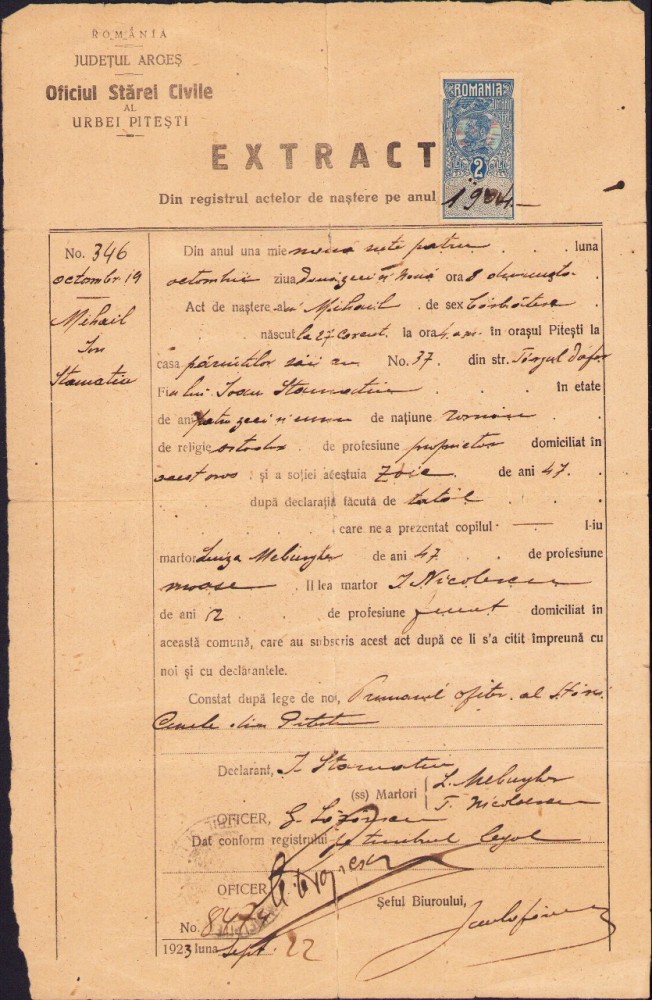 ROMÂNIA
JUDEȚUL ARGEȘ
Oficiul Stărei Civile
AL
URBEI PITEȘTI
ROMANIA
2
EXTRACT
Din registrul actelor de naștere pe anul 1904
No. 346
octombr 19
Mihail
Ion
Stamatiu
Din anul una mie nouă sute patru luna
octombrie ziua două zeci și nouă ora 8 dimineața
Act de naștere al lui Mihail de sex bărbătesc
născut la 27 corent. la ora 4 a.m. în orașul Pitești la
casa părinților săi cu No. 37. din str. Târgul
Fiu lui Ioan Stamatiu în etate
de ani patru zeci și unu de națiune română
de religie ortodox de profesiune proprietar domiciliat în
acest oraș și a soției acestuia Zoie de ani 47.
după declarația făcută de tatăl
care ne a prezentat copilul — I-iu
martor Luiza Meburgher de ani 47 de profesiune
moașe II lea martor I Nicolescu
de ani 52 de profesiune domiciliat în
această comună, care au subscris acest act după ce li s'a citit împreună cu
noi și cu declarantele.
Constat după lege de noi, ofițer al Stărei
Civile din Pitești
Declarant, I. Stamatiu
(ss) Martori L. Meburgher
I. Nicolescu
OFICER, G.
Dat conform registrului de timbrul legal
OFICER
Șeful Biuroului,
No.
1923 luna Sept. 22